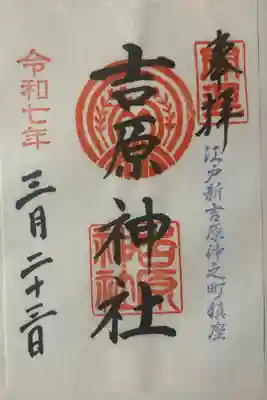 奉拝
江戸新吉原仲之町鎮座
吉原神社
令和七年
三月二十三日